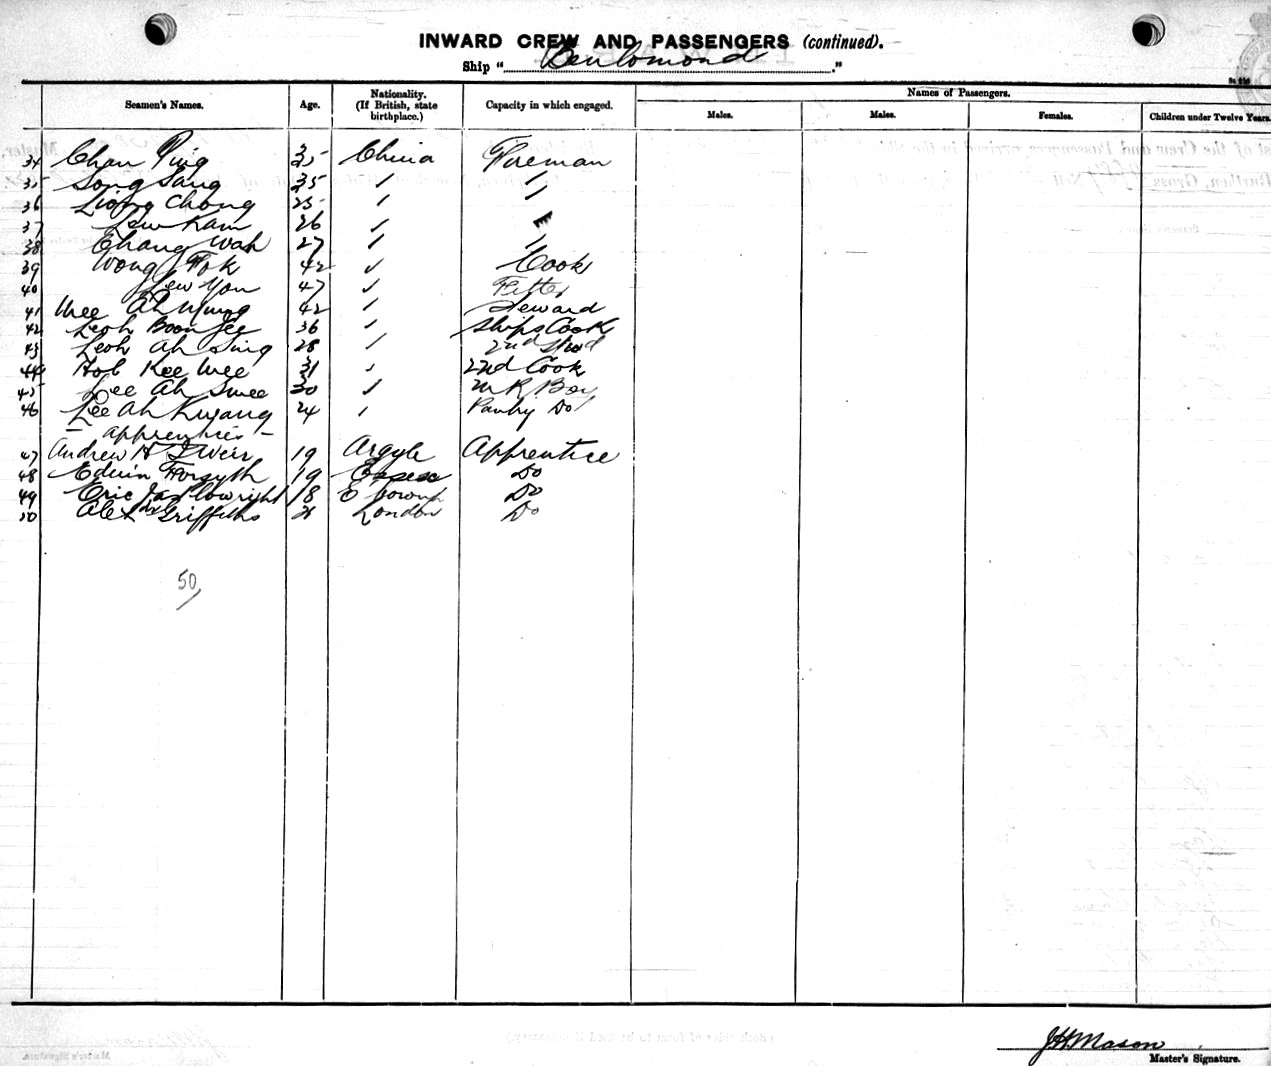 INWARD CREW AND PASSENGERS (continued).
Ship "Benlomond."
Seamen's Names. Age. Nationality. (If British, state birthplace.) Capacity in which engaged. Names of Passengers.
Males. Males. Females. Children under Twelve Years.
34 Chan Ping 35 China Fireman
35 Song Sang 35 " "
36 Liong Chong 25 " "
37 Lew Kam 26 " "
38 Chang Wah 27 " "
39 Wong Fok 42 " Cook
40 Lew Yon 47 " Fitter
41 Wee Ah 42 " Steward
42 Leoh Boon Jee 36 " Ships Cook
43 Leoh Ah Sing 28 " 2nd Stwd
44 Hob Kee Wee 31 " 2nd Cook
45 Lee Ah Swee 30 " M R Boy
46 Lee Ah Kwang 24 " Pantry Do
— apprentices —
47 Andrew H Weir 19 Argyle Apprentice
48 Edwin Forsyth 19 Essex Do
49 Eric Jas 18 E Do
50 Alex Griffiths London Do
50
JHMason
Master's Signature.